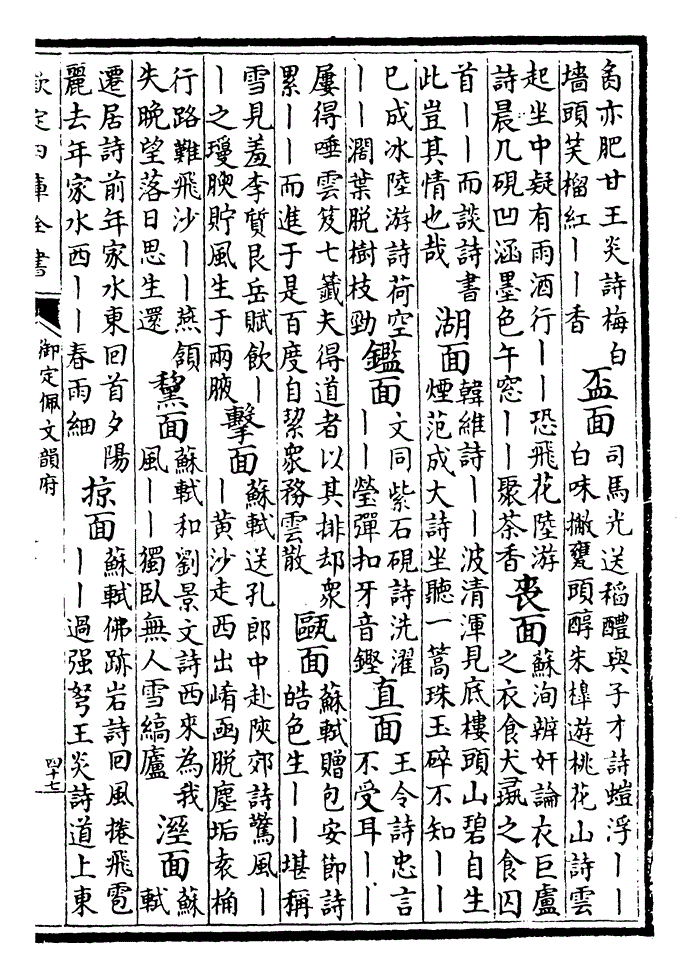 亦肥甘王炎詩梅白
墻頭笑榴紅——香
盃面
司馬光送稻醴與子才詩螘浮——
白味撇甕頭醇朱槔遊桃花山詩雲
起坐中疑有雨酒行——恐飛花陸游
詩晨几硯凹涵墨色午窓——聚茶香
喪面
蘇洵辨奸論衣巨盧
之衣食犬彘之食囚
首——而談詩書
此豈其情也哉
湖面
韓維詩——波清渾見底樓頭山碧自生
煙范成大詩坐聽一蒿珠玉碎不知——
已成冰陸游詩荷空
——濶葉脫樹枝勁
鑑面
文同紫石硯詩洗濯
——瑩彈扣牙音鏗
直面
王令詩忠言
不受耳——
屢得唾雲笈七籤夫得道者以其排却衆
累——而進于是百度自㓗衆務雲散
甌面
蘇軾贈包安節詩
皓色生——堪稱
雪見羞李質艮岳賦飲—
—之瓊腴貯風生于兩腋
擊面
蘇軾送孔郎中赴陝郊詩驚風—
—黄沙走西出崤函脫塵垢袁桷
行路難飛沙——燕頷
失晚望落日思生還
黧面
蘇軾和劉景文詩西來為我
風——獨臥無人雪縞廬
溼面
蘇
軾
遷居詩前年家水東回首夕陽
麗去年家水西——春雨細
掠面
蘇軾佛跡岩詩回風捲飛雹
——過强弩王炎詩道上東
欽定四庫全書
御定佩文韻府
四十七